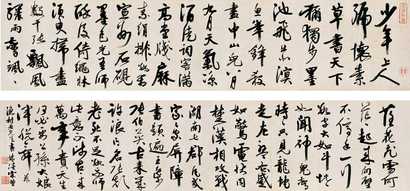 少年上人
號懷素
草書天下
稱獨步墨
池飛出北溟
魚筆鋒殺
盡中山兔八
月九月天氣涼
酒徒詞客
滿高堂牋麻
素絹排數廂
宣州石硯
墨色光吾師
醉後倚繩床
須臾掃盡
數千張飄風
驟雨驚颯颯
落花飛雪何
茫茫起來向壁
不停手一行數
字大如斗怳怳
如聞神鬼驚
時時只見龍蛇
走左盤右蹙
如驚電狀同
楚漢相攻戰
湖南七郡凡幾
家家家屏障
書題遍王逸少
張伯英古來幾
許浪得名張顛
老死不足數我
師此義不師古古來
萬事貴天生何
必要公孫大娘
渾脫舞